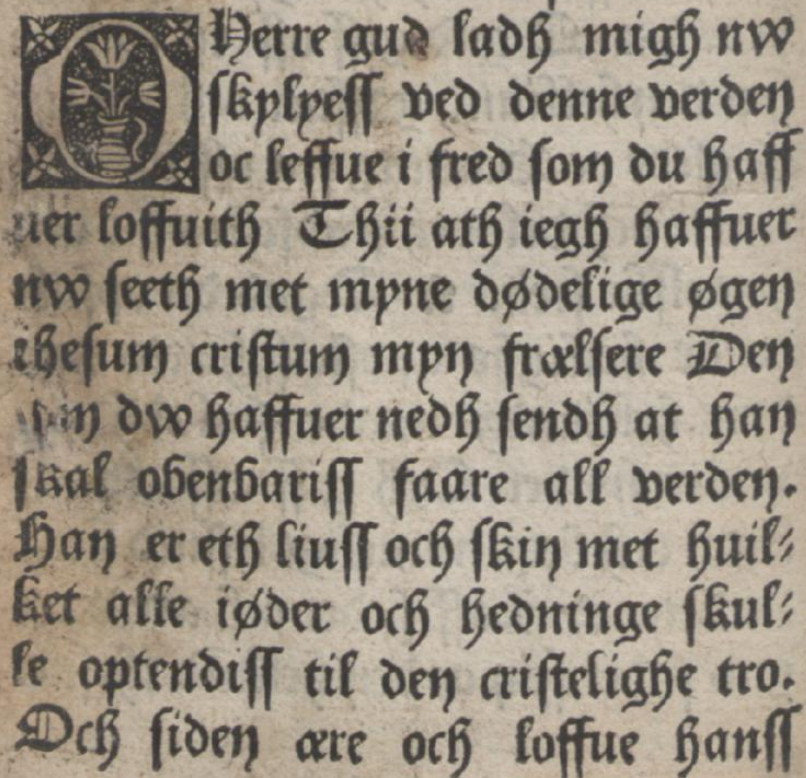 O Herre gud ladh migh nw
skylyess ved denne verden
oc leffue i fred som du haff
uer loffuith Thii ath iegh haffuer
nw seeth met myne dødelige øgen
ihesum cristum myn frælsere Den
som dw haffuer nedh sendh at han
skal obenbariss faare all verden.
Han er eth liuss och skin met huil⸗
ket alle iøder och hedninge skul⸗
le optendiss til den cristelighe tro.
Och siden ære och loffue hanss